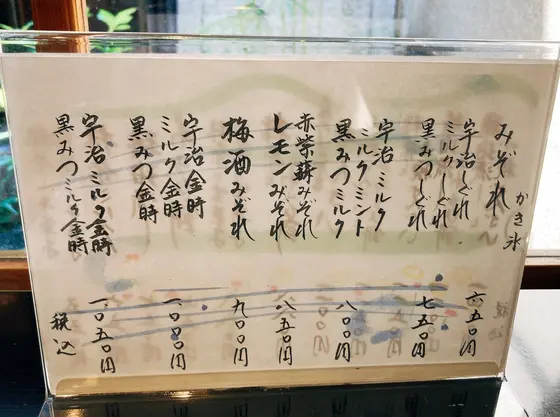 かき氷
みぞれ
六五〇円
宇治しぐれ
ミルクしぐれ
黒みつしぐれ
七五〇円
宇治ミルク
ミルクミント
黒みつミルク
八〇〇円
赤紫蘇みぞれ
レモンみぞれ
八五〇円
梅酒みぞれ
九〇〇円
宇治金時
ミルク金時
黒みつ金時
一〇〇〇円
宇治ミルク金時
黒みつミルク金時
一〇五〇円
税込